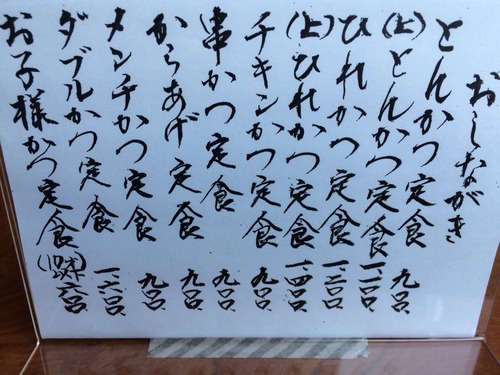 おしながき
とんかつ定食 九〇〇
(上)とんかつ定食 一、二〇〇
ひれかつ定食 一、二〇〇
(上)ひれかつ定食 一、四〇〇
チキンかつ定食 九〇〇
串かつ定食 九〇〇
からあげ定食 九〇〇
メンチかつ定食 九〇〇
ダブルかつ定食 一、六〇〇
お子様かつ定食 六〇〇